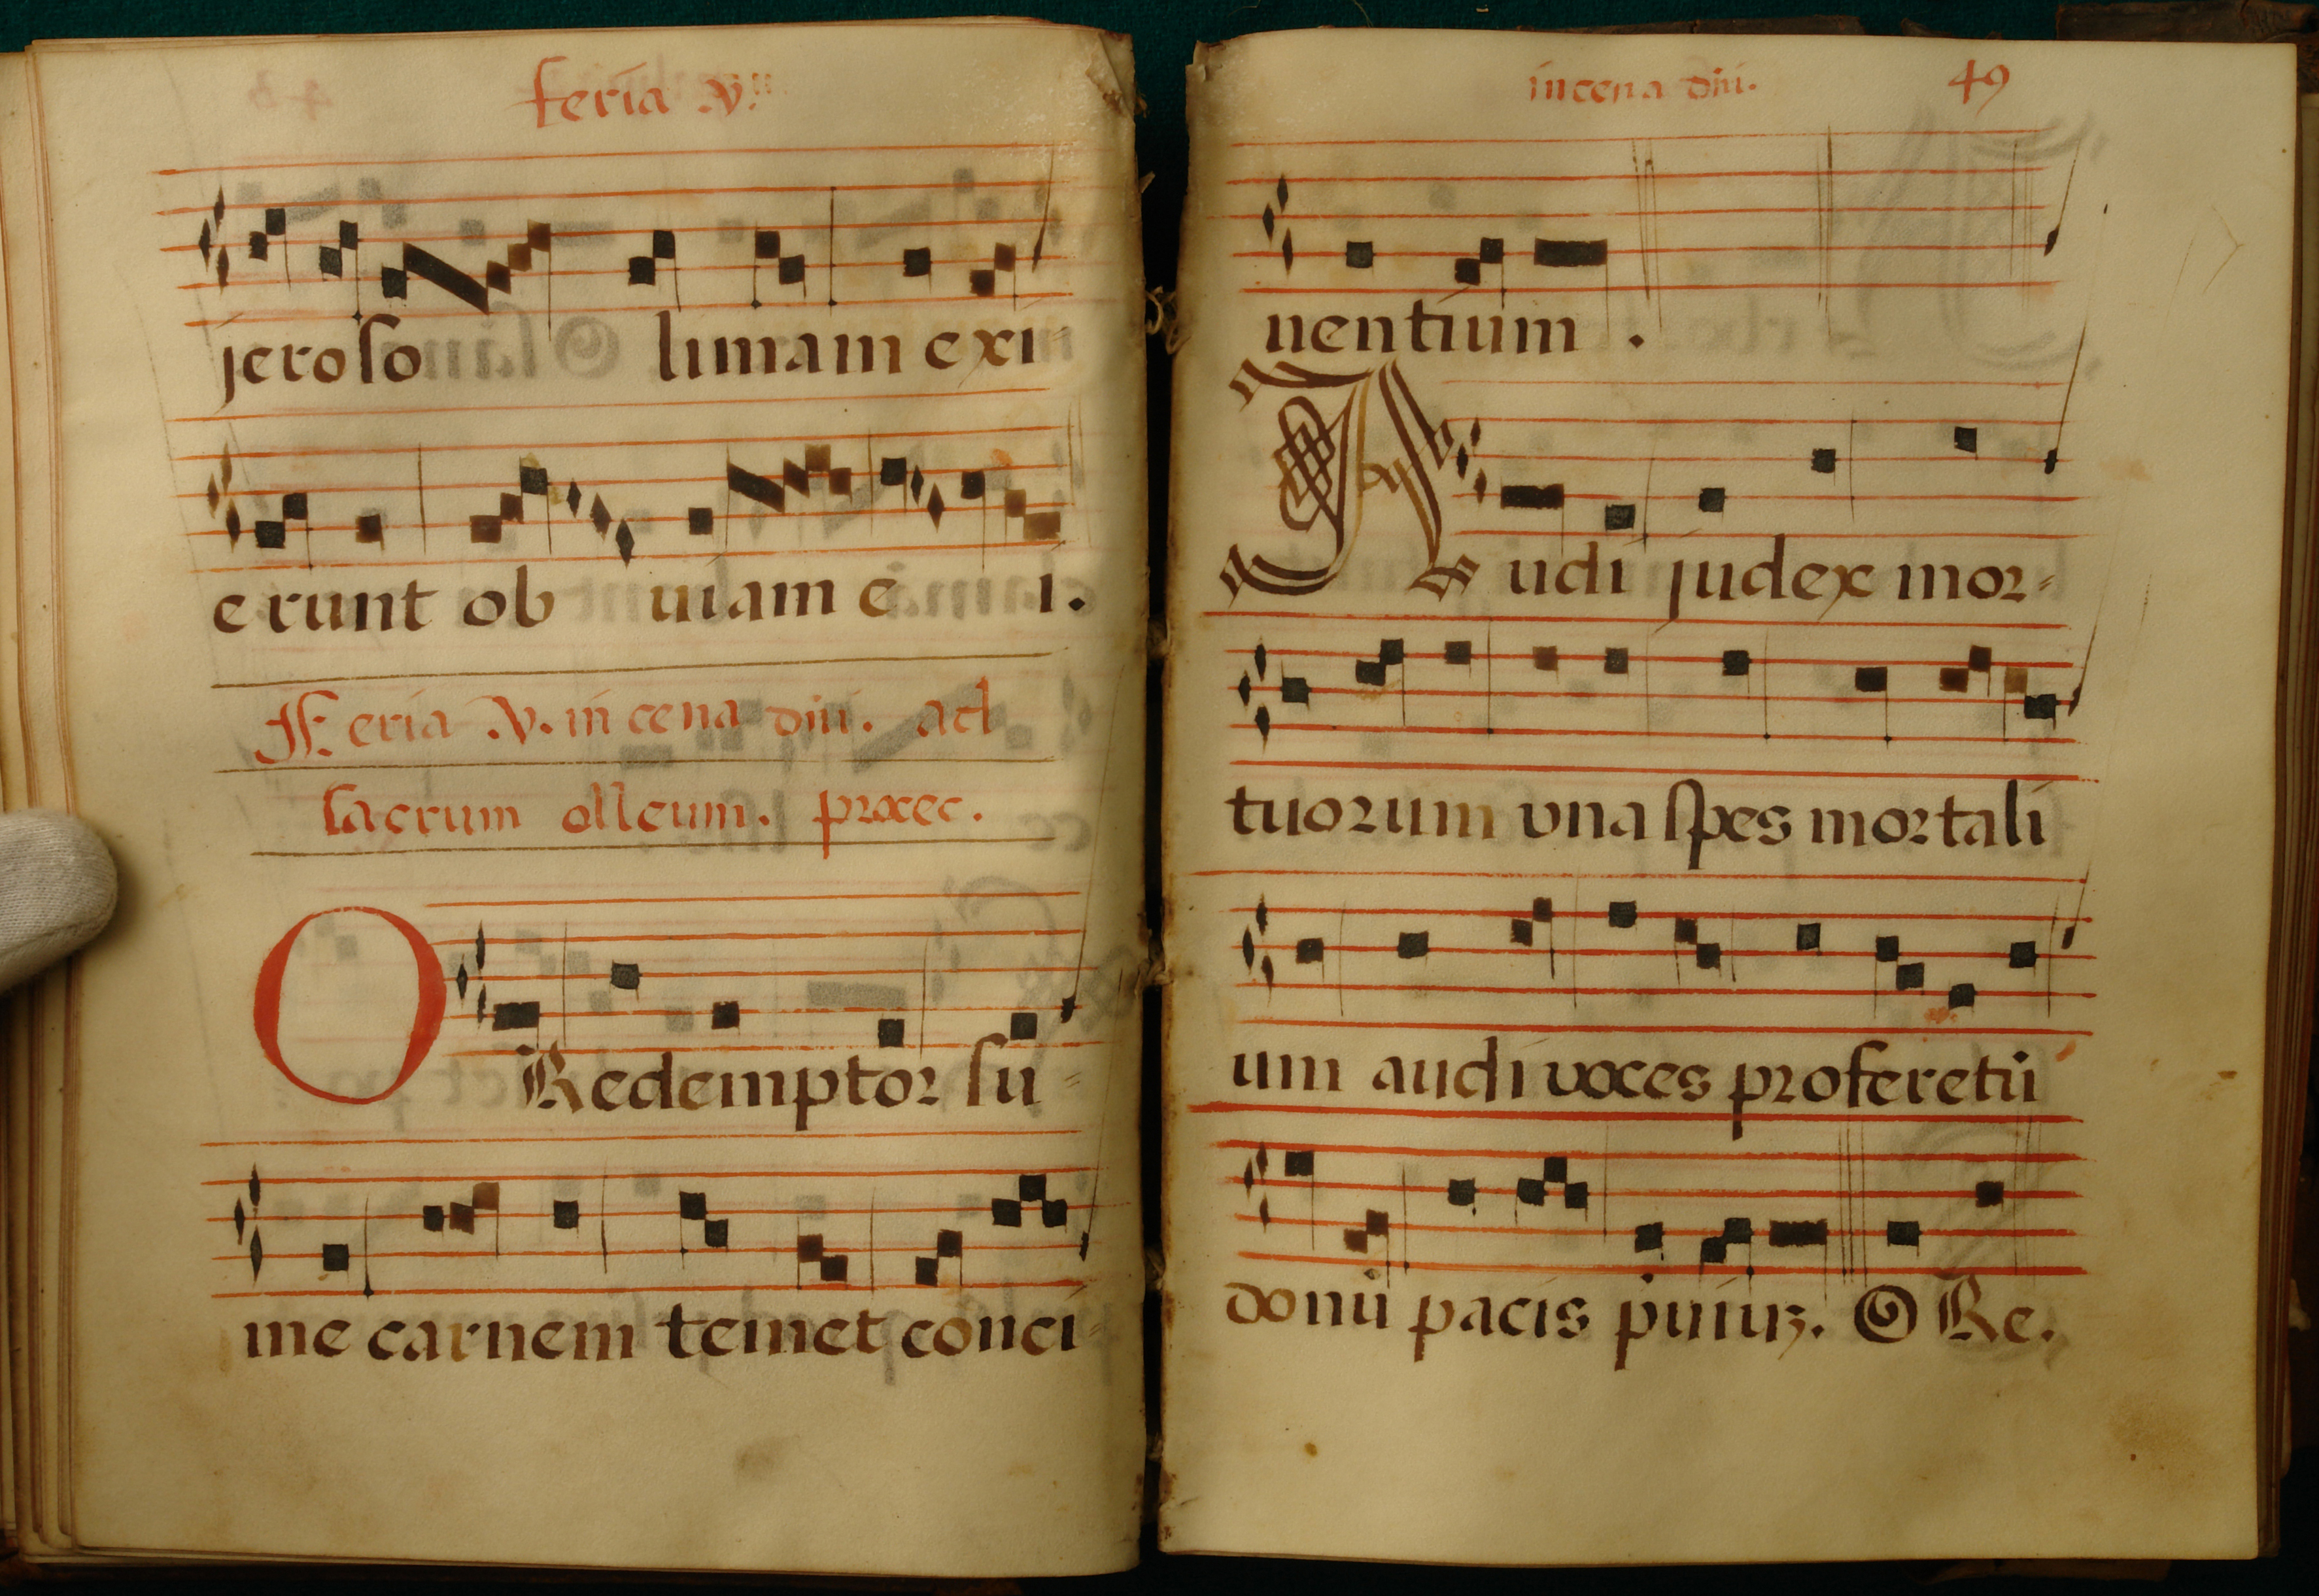 feria .v.
jeroso limam exi
erunt ob uiam e i.
Feria .v. in cena dñi. ad
sacrum olleum. procec.
O Redemptor su-
me carnem temet conci-
in cena dñi. 49
nentium.
Audi judex mor-
tuorum vna spes mortali
um audi voces proferetiũ
donũ pacis p̃uiuꝫ. O Re.